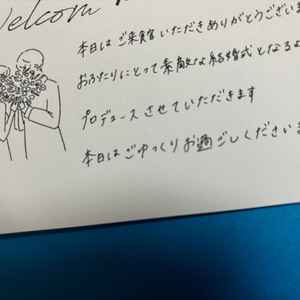 Welcom
本日はご来館いただきありがとうございま
おふたりにとって素敵な結婚式となるよ
プロデュースさせていただきます
本日はごゆっくりお過ごしくださいま